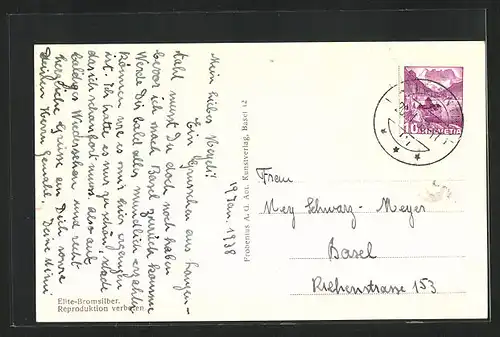 19 Jan. 1938
Mein liebes Vregeli!
Ein Grüsschen aus Langen-
tahl musst Du doch noch haben
bevor ich nach Basel zurück komme
Werde Dir bald alles mündlich erzählen
können wie es mir hier ergangen
ist. Ich hatte es nur zu schön, schade
das ich schon fort muss. Also auf
baldiges Wiedersehen und recht
herzliche Grüsse an Dich sowie
Deinen Herrn Gemahl. Deine Mimi
Elite-Bromsilber.
Reproduktion verboten
Frobenius A. G. Abt. Kunstverlag, Basel 12
10 HELVETIA
Frau
Meg Schwarz - Meyer
Basel
Riehenstrasse 153